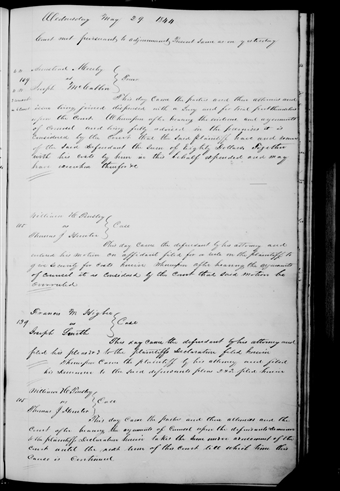 Wednesday May 29 1844
Court met pursuant to adjournment, Present same as on yesterday
109 vs
Joseph McCallin
This day came the parties and their attornies and
issue being joined dispensed with a Jury and for trial put themselves
upon the Court Whereupon after hearing the evidence and arguments
of Counsel and being fully advised in the premises it is
considered by the Court that the said plaintiff have and recover
of the said defendant the sum of Eighty Dollars Together
with his costs by him in this behalf expended and may
have execution therefor
William W.
105 vs Case
Thomas J Hunter
This day came the defendant by his attorney and
filed his motion on affidavit filed for a rule on the plaintiff to
give security for costs herein Whereupon after hearing the arguments
of counsel it is considered by the Court that said motion be
overruled
Francis M Higbee
139 vs Case
Joseph Smith
This day came the defendant by his attorney and
filed his pleas to the plaintiffs declaration filed herein
Whereupon came the plaintiff by his attorney and filed
his demurrer to the said defendants pleas 2 & 3 filed herein
William W.
105 vs Case
Thomas J Hunter
This day came the parties and their attornies and the
Court after hearing the arguments of Counsel upon the defendants demurrer
to the plaintiffs declaration herein takes the same under advisement of the
Court until the next term of this Court till which time this
Cause is Continued